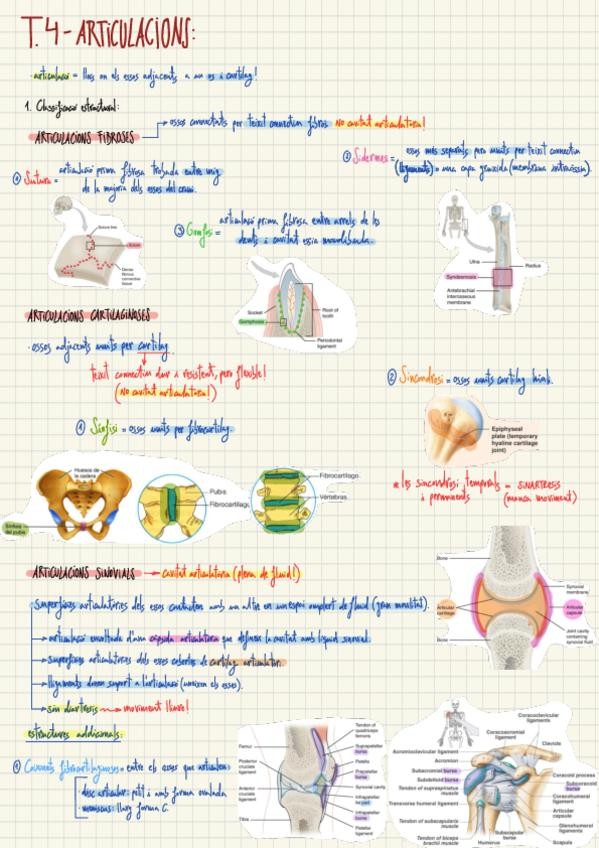 T.4 - ARTICULACIONS:
· articulació = lloc on els ossos adjacents a un os i cartílag!
1. Classificació estructural:
ARTICULACIONS FIBROSES
ossos connectats per teixit connectiu fibrós NO cavitat articulatòria!
① Sutura = articulació prima fibrosa trobada entre mig
de la majoria dels ossos del crani.
② Sidesmes = ossos més separats però units per teixit connectiu
(lligaments) = una capa gruixida (membrana intraòssia).
Suture line
Suture
Dense fibrous connective tissue
③ Gomfosi = articulació prima fibrosa entre arrels de les
dents i cavitat òssia mandibula.
Socket
Gomphosis
Root of tooth
Periodontal ligament
Ulna
Radius
Syndesmosis
Antebrachial interosseous membrane
ARTICULACIONS CARTILAGINOSES
· ossos adjacents units per cartílag
teixit connectiu dur i resistent, però flexible!
(NO cavitat articulatòria!)
① Sínfisi = ossos units per fibrocartílag.
Huesos de la cadera
Sínfisis del pubis
Pulpa
Fibrocartílago
Fibrocartílago
Vértebras
② Sincondrosi = ossos units cartílag hialí.
Epiphyseal plate (temporary hyaline cartilage joint)
* les sincondrosi temporals = SINARTROSIS
i permanents (manca moviment)
ARTICULACIONS SINOVIALS → cavitat articulatòria (plena de fluid!)
Superfícies articulatòries dels ossos contacten amb un altre en un espai omplert de fluid (gran mobilitat).
→ articulació envoltada d'una càpsula articulatòria que defineix la cavitat amb líquid sinovial.
→ superfícies articulatòries dels ossos cobertes de cartílag articulatori.
→ lligaments donen suport a l'articulació (uneixen els ossos).
→ són diartrosis → moviment lliure!
Bone
Synovial membrane
Articular cartilage
Articular capsule
Joint cavity containing synovial fluid
Bone
estructures addicionals:
① Coixinets fibrocartilaginosos = entre els ossos que articulen.
disc articular: petit i amb forma ovalada
meniscus: llarg forma C.
Femur
Posterior cruciate ligament
Anterior cruciate ligament
Tibia
Tendon of quadriceps femoris
Suprapatellar bursa
Patella
Prepatellar bursa
Synovial cavity
Infrapatellar fat pad
Infrapatellar bursa
Patellar ligament
Coracoclavicular ligaments
Coracoacromial ligament
Clavicle
Acromioclavicular ligament
Acromion
Subacromial bursa
Subdeltoid bursa
Tendon of supraspinatus muscle
Transverse humeral ligament
Tendon of subscapularis muscle
Tendon of biceps brachii muscle
Humerus
Subscapular bursa
Coracoid process
Subcoracoid bursa
Coracohumeral ligament
Articular capsule
Glenohumeral ligaments
Scapula